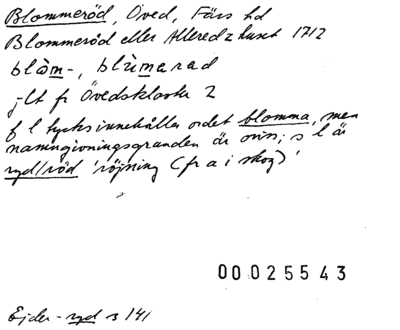 Blommeröd, Öved, Färs hd
Blommeröd eller Alleredz huset 1712
blòm-, blùmarad
jlt fr Övedskloster 2
f l tycks innehålla ordet blomma, men
namngivningsgrunden är oviss; s l är
ryd/röd 'röjning (fr a i skog)'
00025543
Ejder-ryd s 141